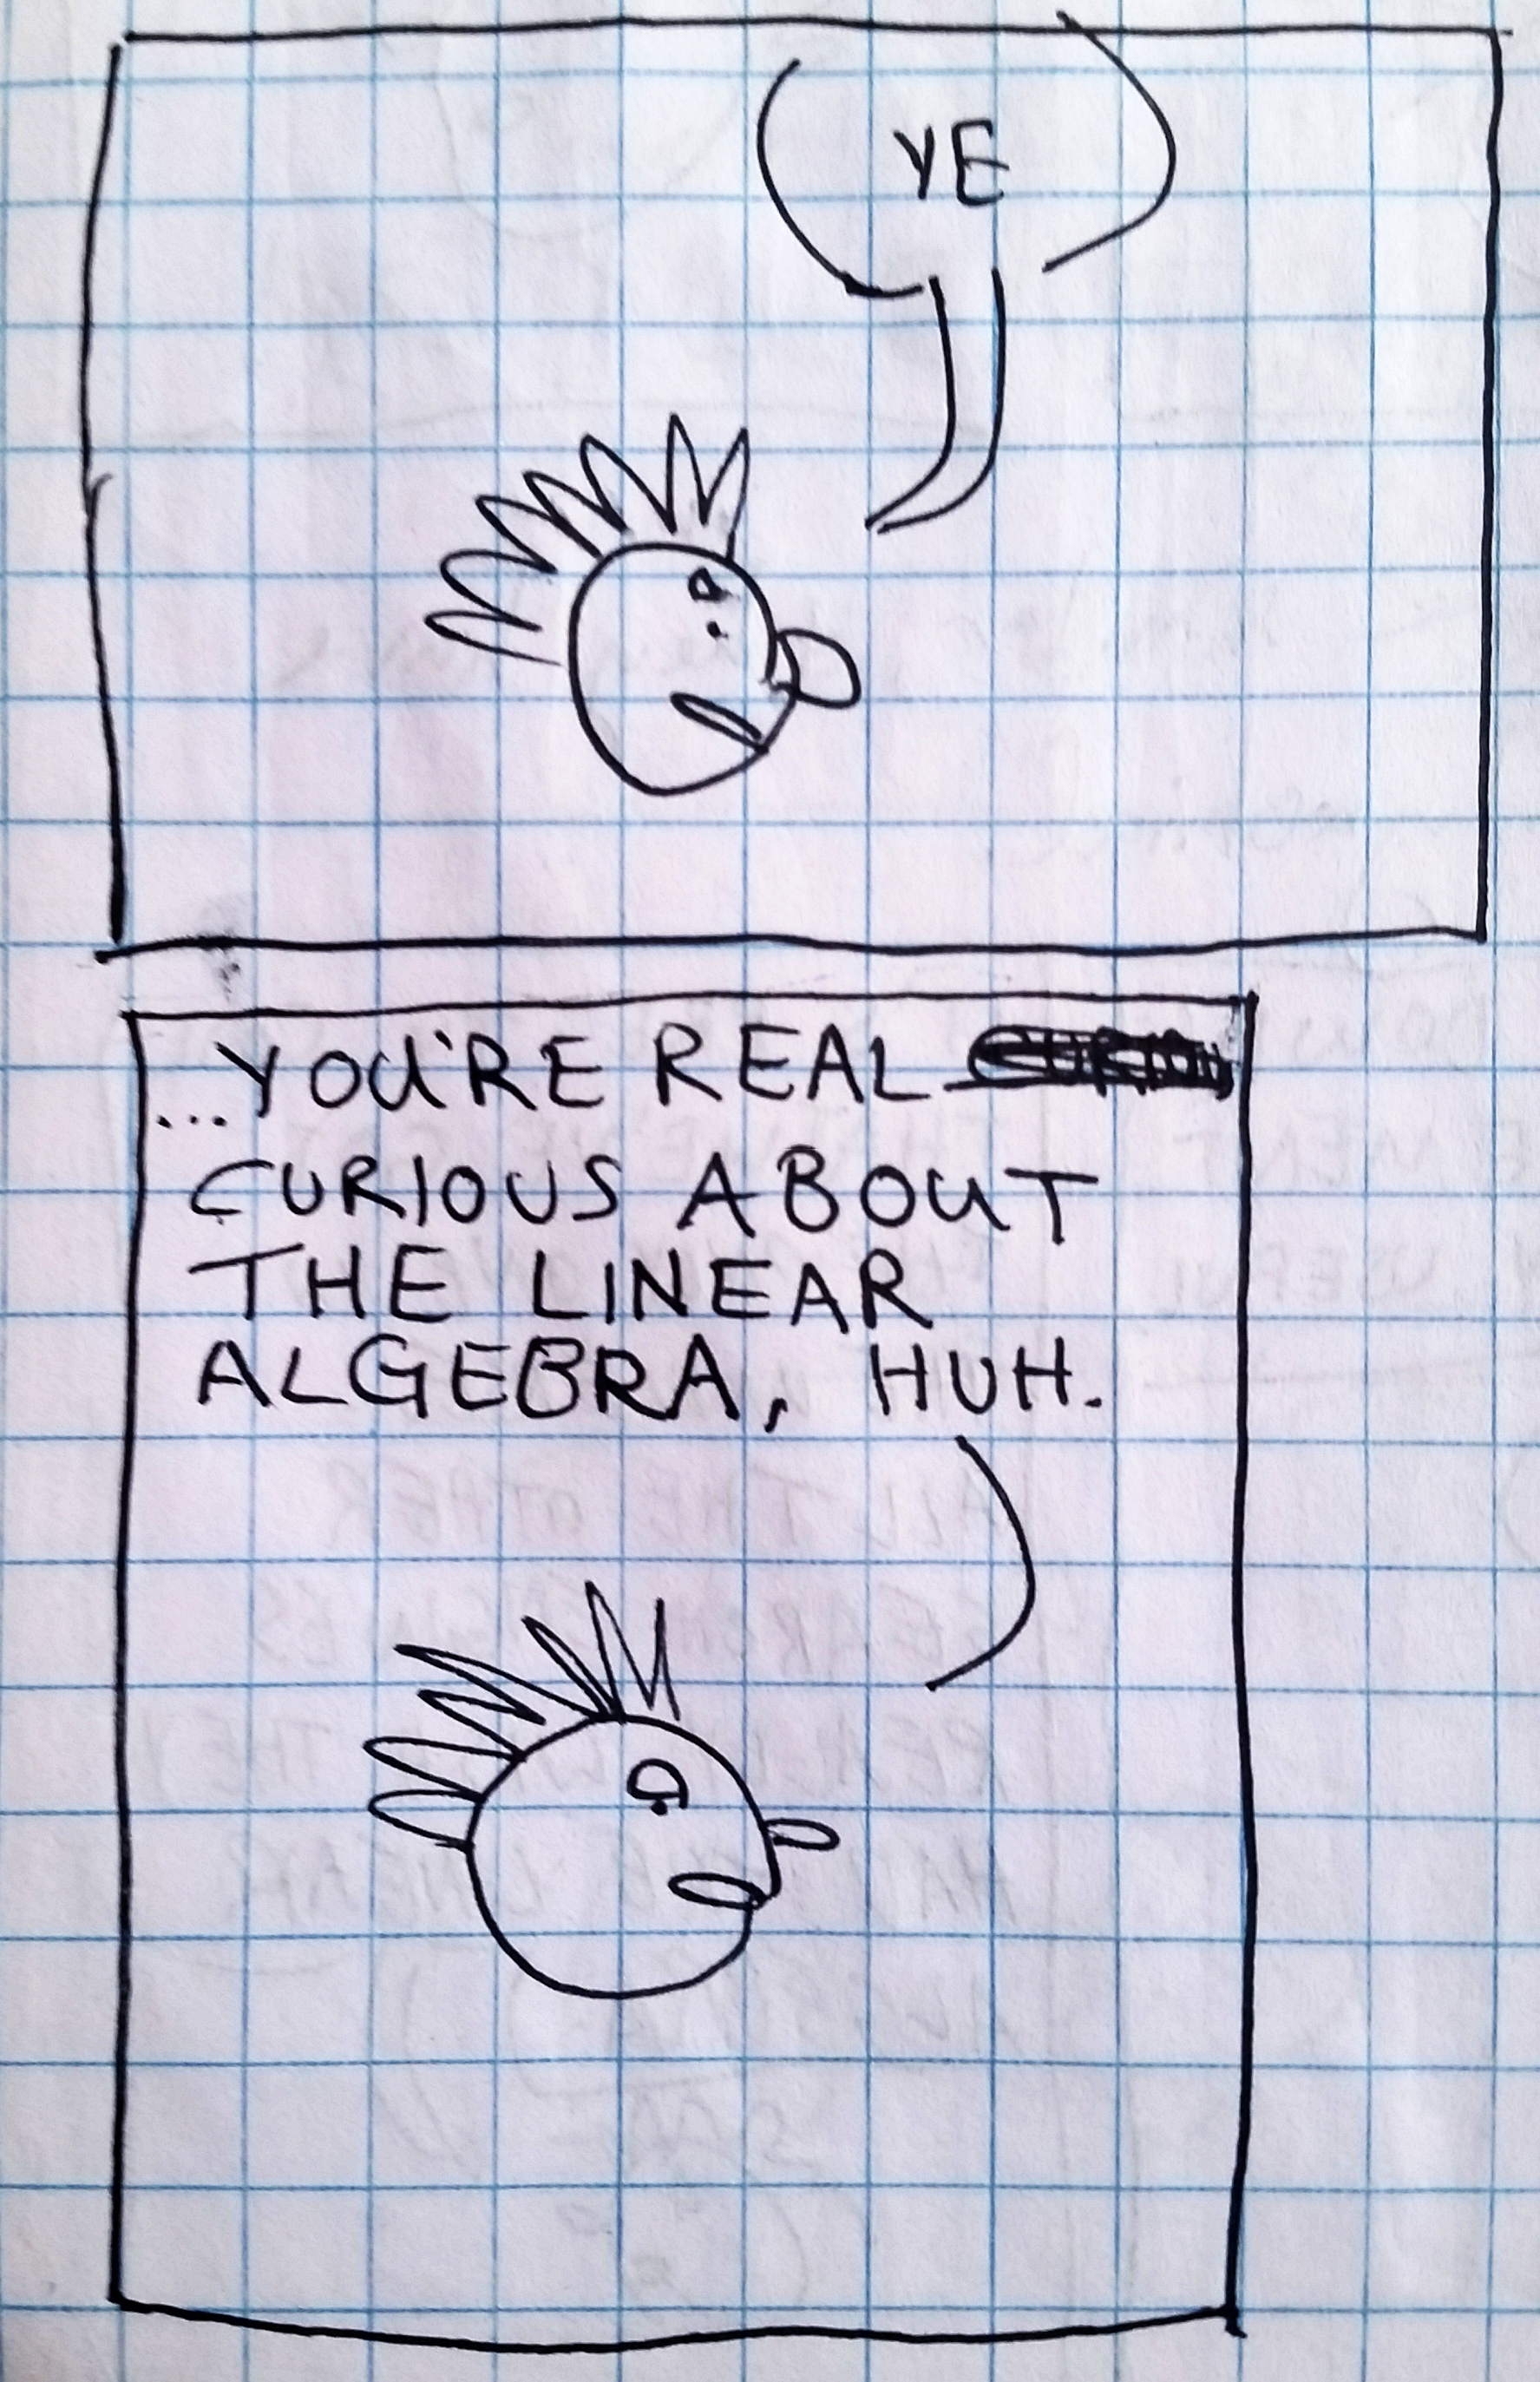 YE
...YOU'RE REAL
CURIOUS ABOUT
THE LINEAR
ALGEBRA, HUH.